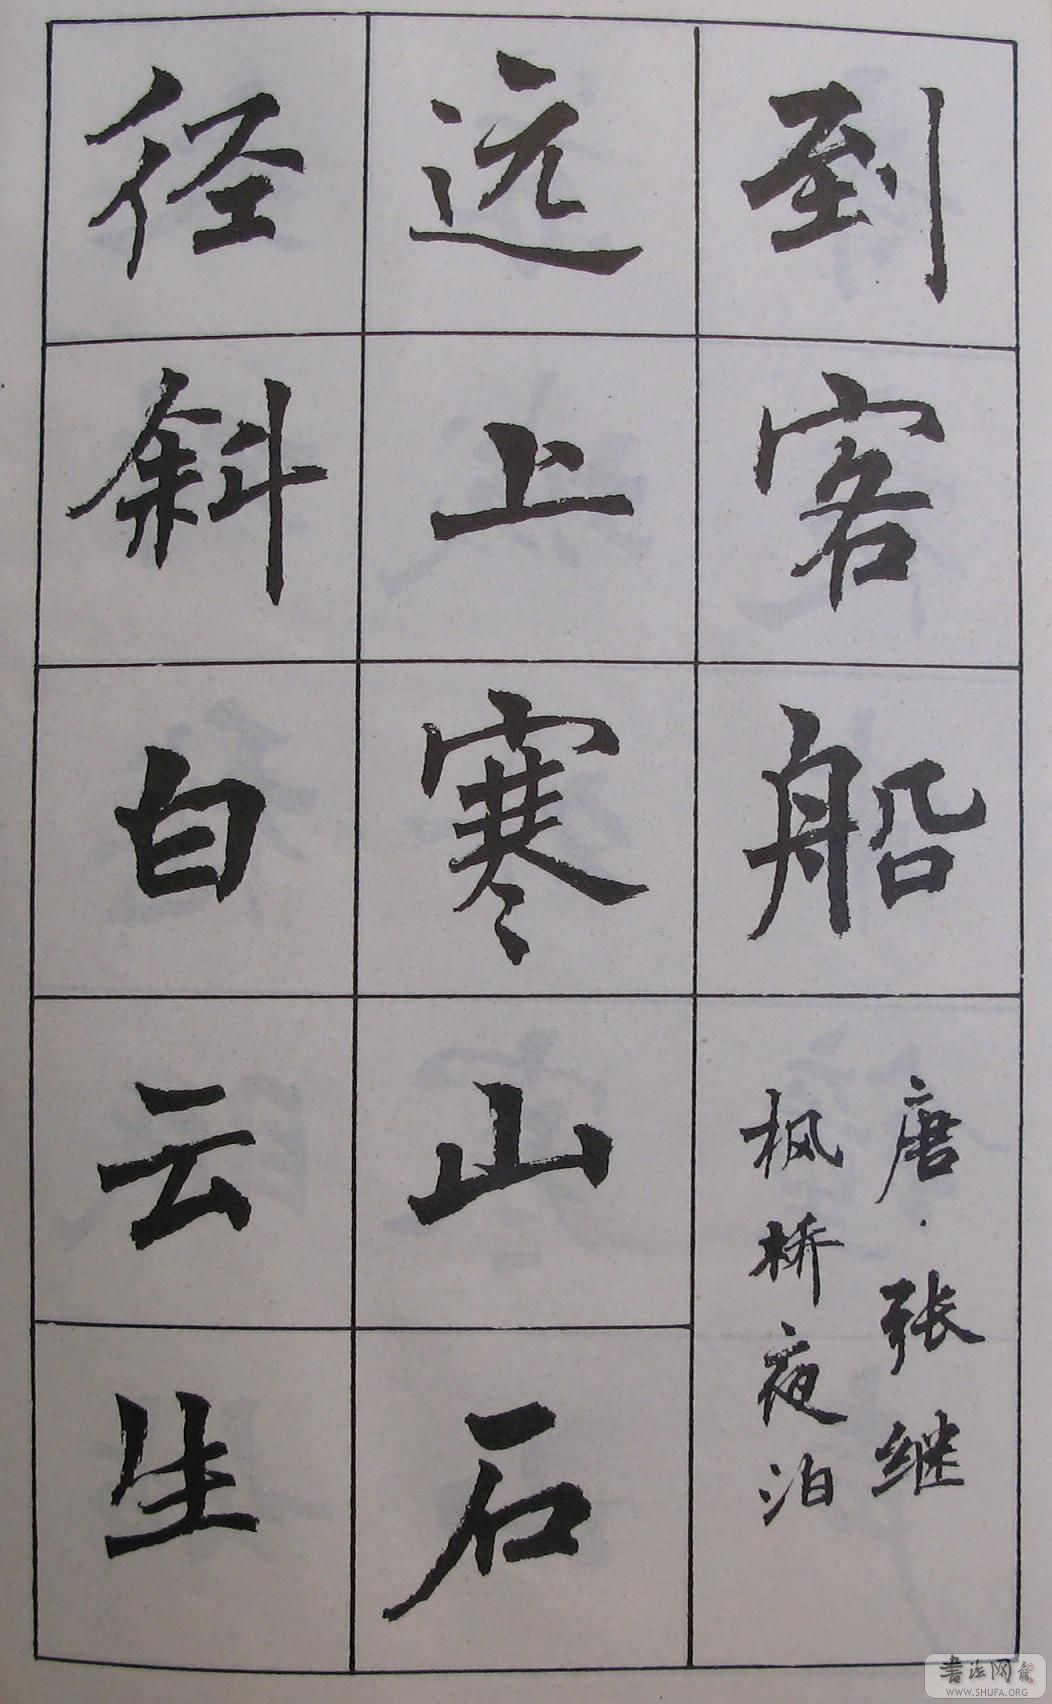 到客船
唐·张继
枫桥夜泊
远上寒山石
径斜白云生
书法网
WWW.SHUFA.ORG